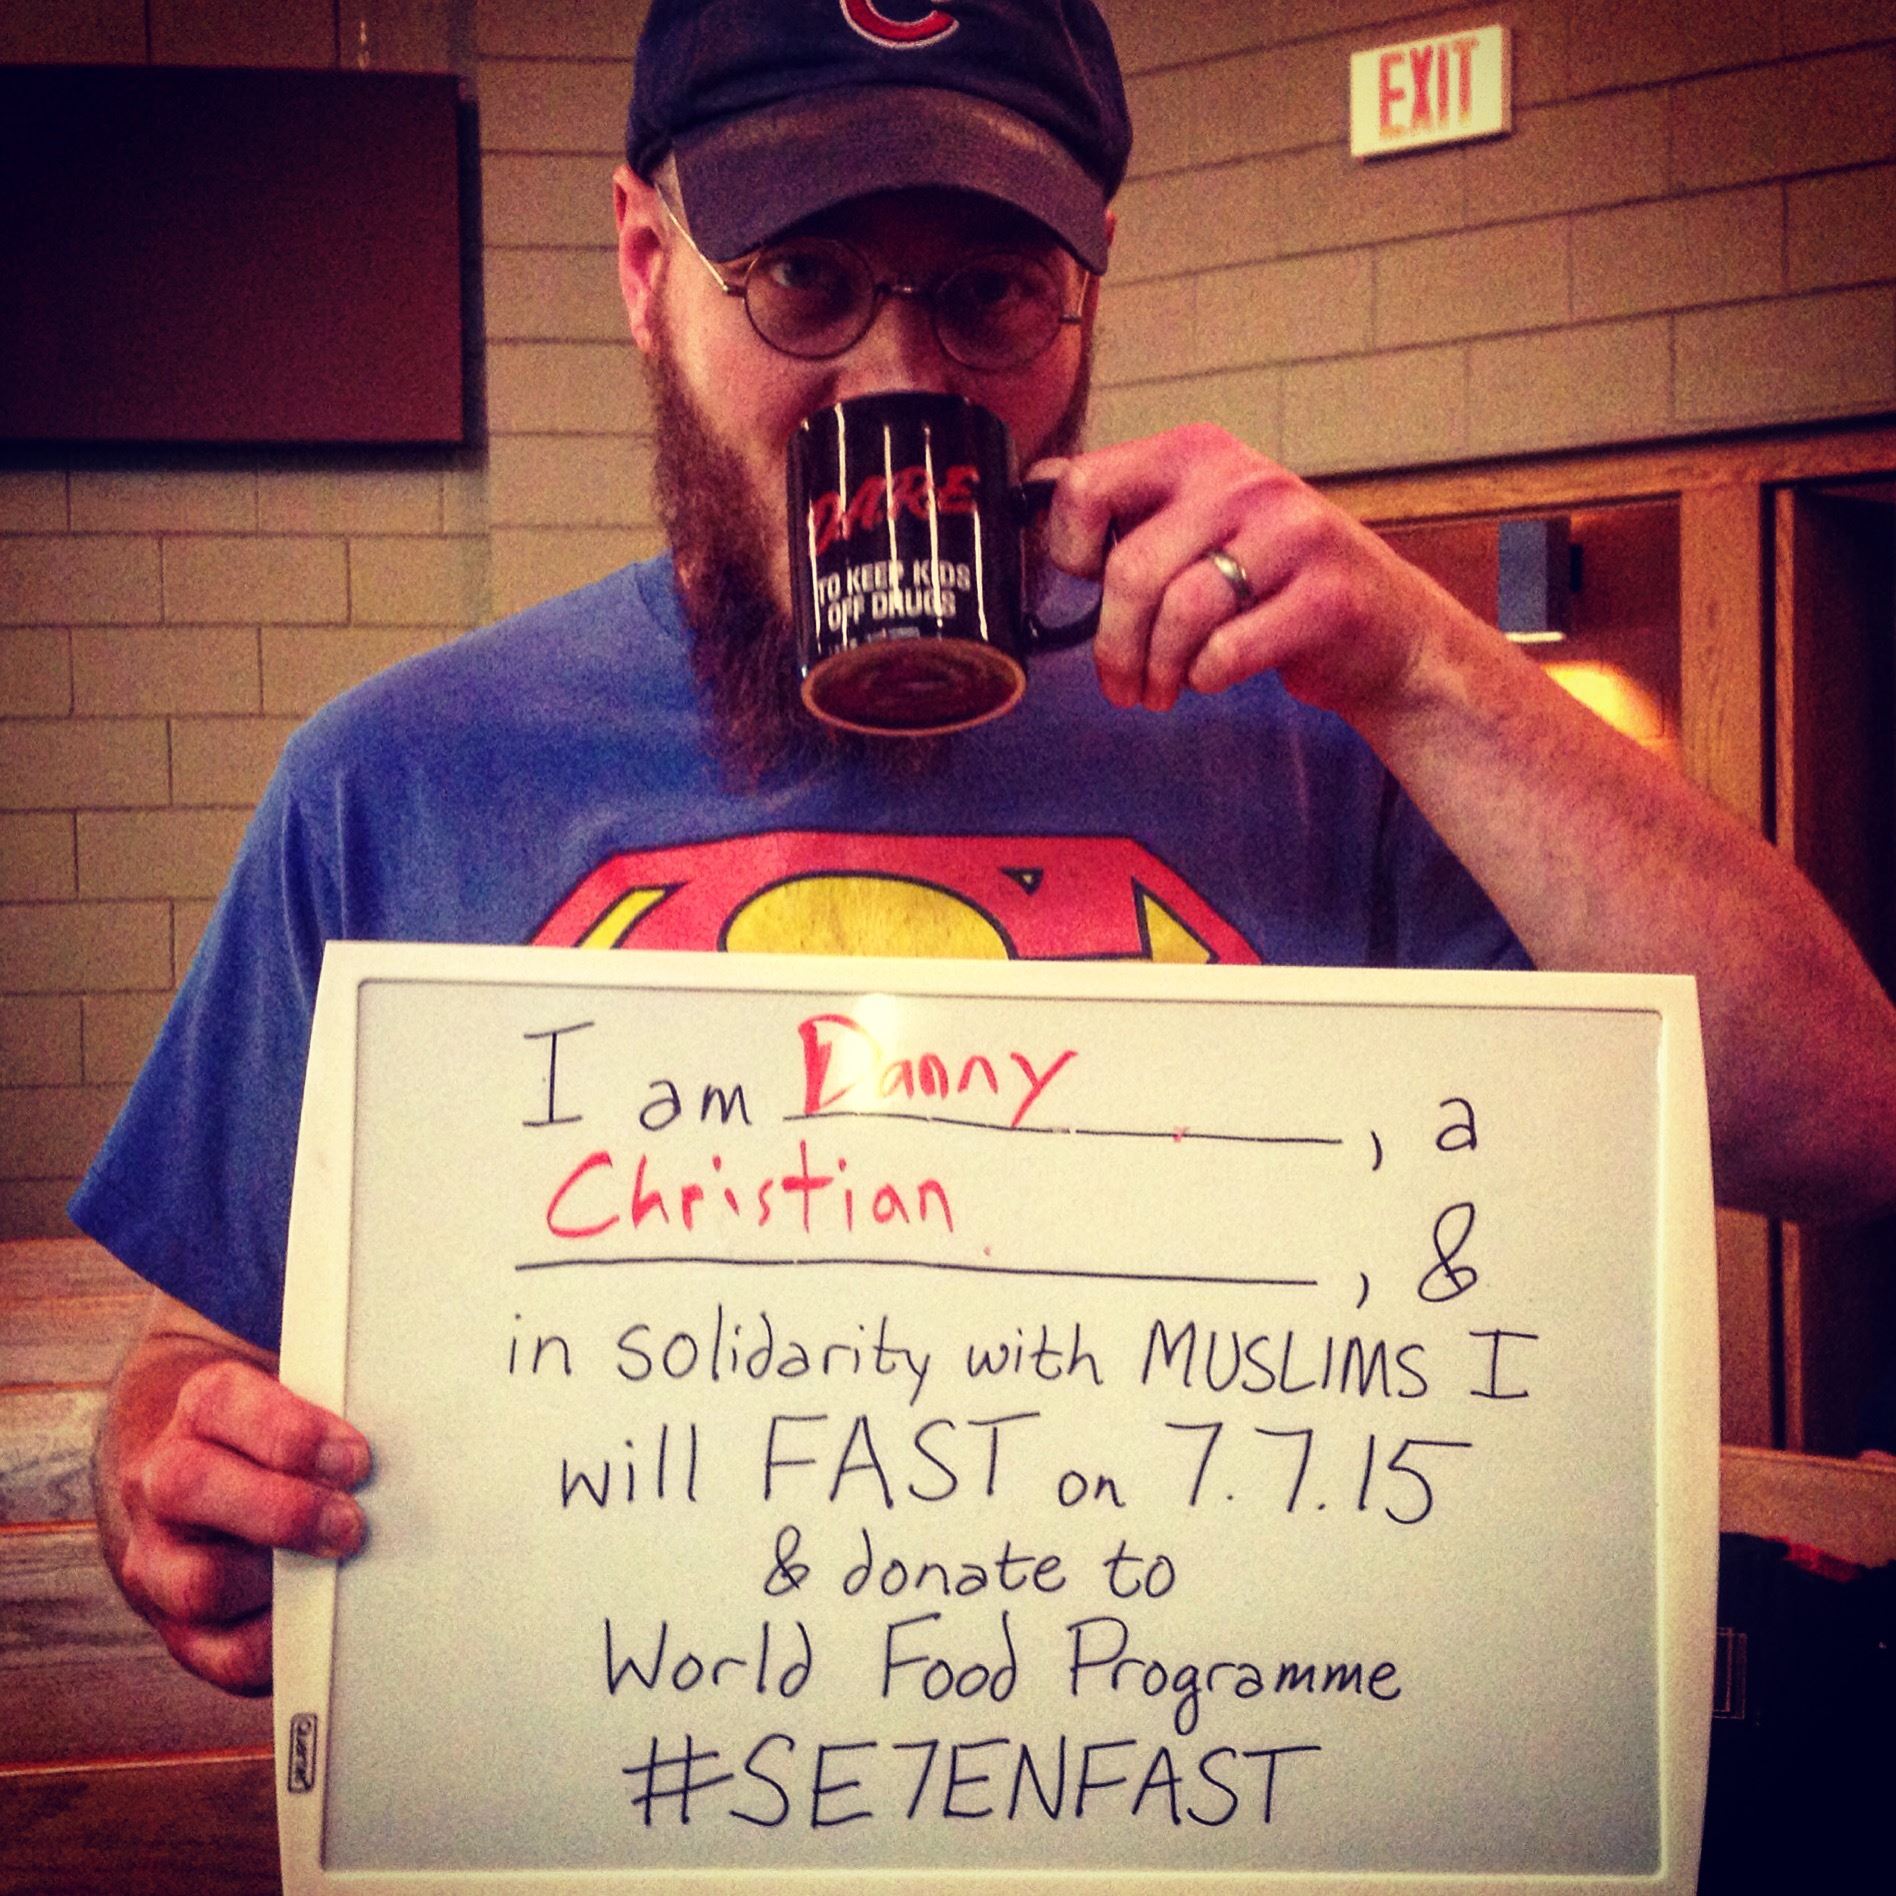 C
EXIT
DARE
TO KEEP KIDS
OFF DRUGS
I am Danny, a
Christian, &
in solidarity with MUSLIMS I
will FAST on 7.7.15
& donate to
World Food Programme
#SE7ENFAST
Quartet